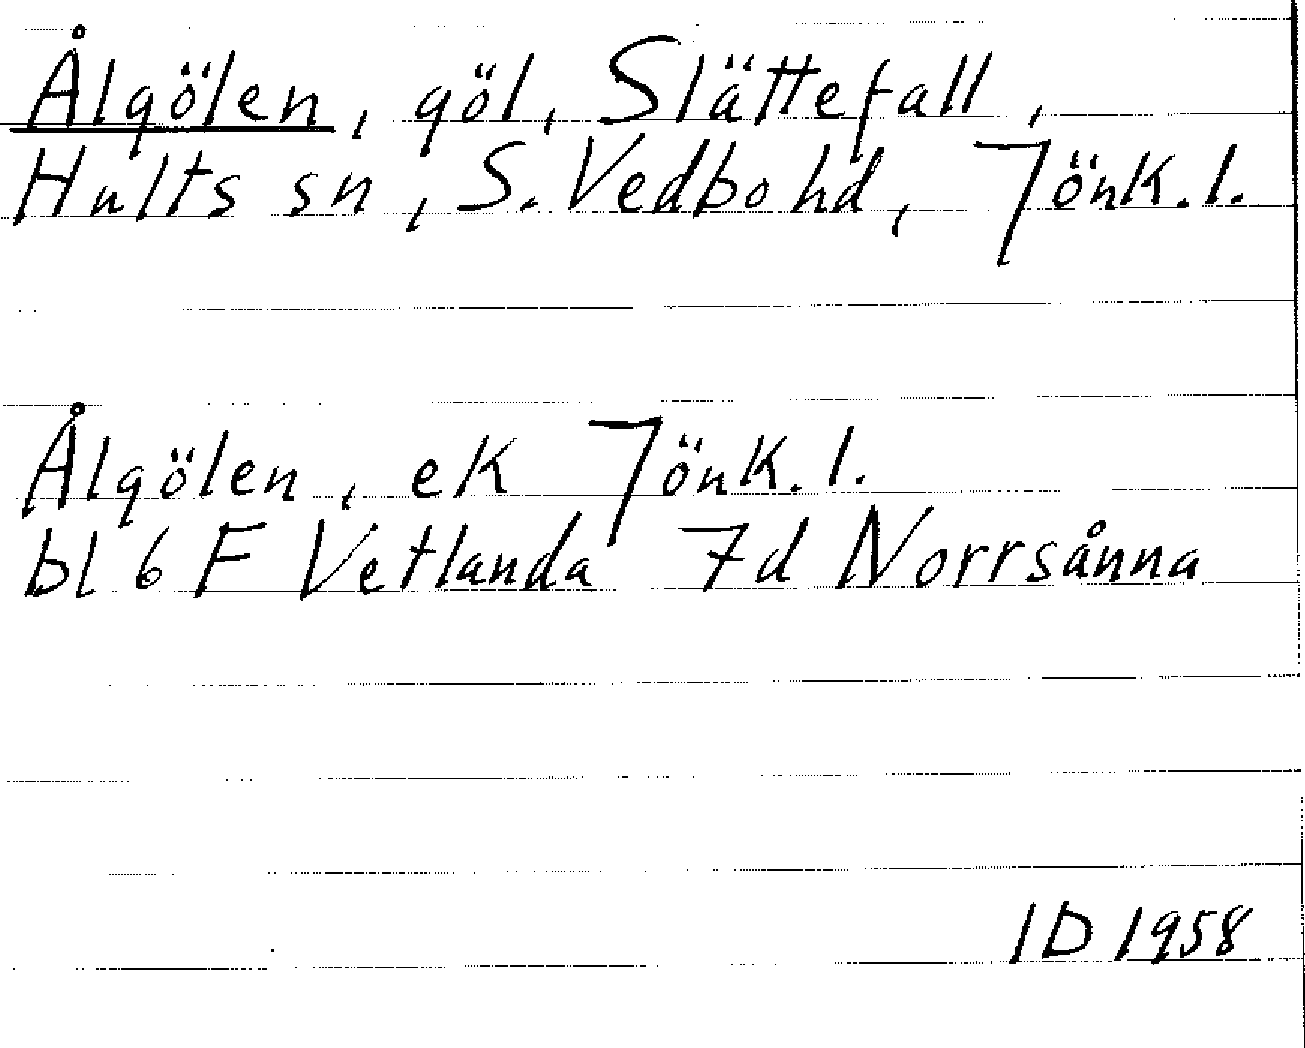 Ålgölen, göl, Slättefall,
Hults sn, S. Vedbo hd, Jönk. l.
Ålgölen, ek Jönk. l.
bl 6 F Vetlanda 7d Norrsånna
ID 1958